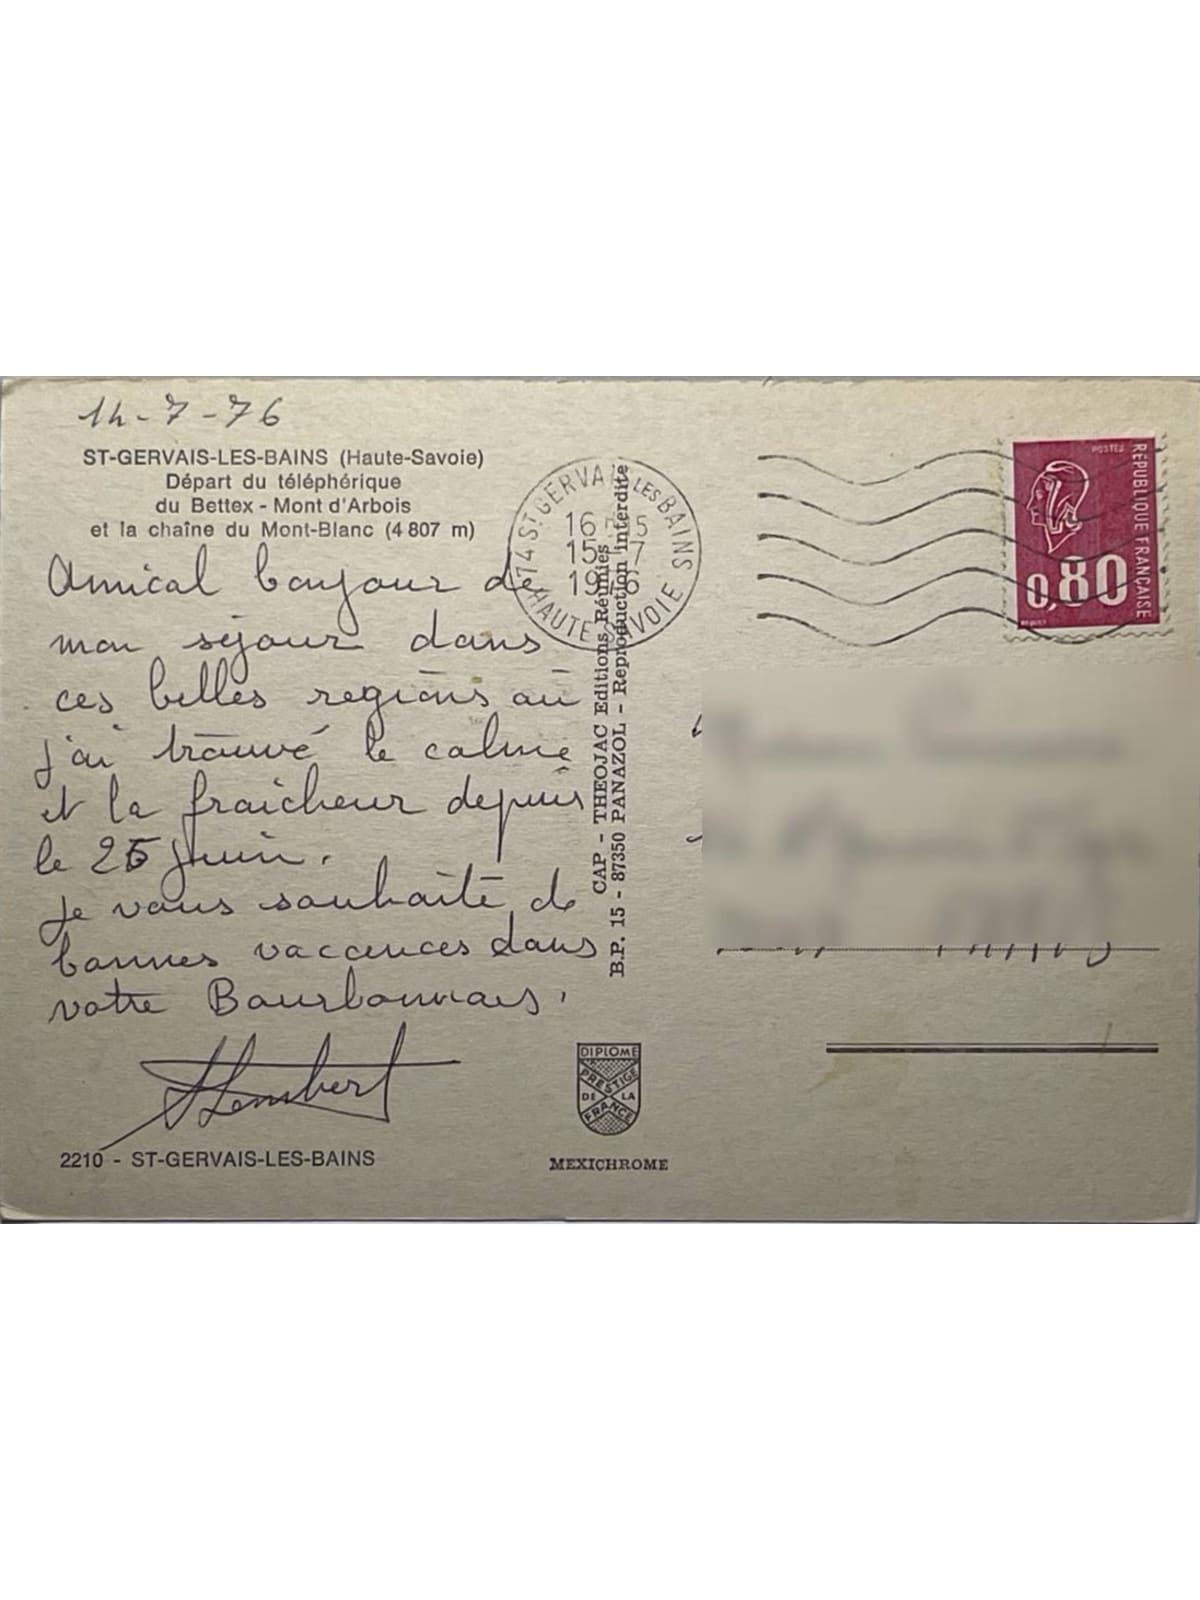 14-7-76
ST-GERVAIS-LES-BAINS (Haute-Savoie)
Départ du téléphérique
du Bettex - Mont d'Arbois
et la chaîne du Mont-Blanc (4 807 m)
Amical bonjour de
mon séjour dans
ces belles régions où
j'ai trouvé le calme
et la fraicheur depuis
le 25 juin.
Je vous souhaite de
bonnes vacances dans
votre Bourbonnais.
Lembert
2210 - ST-GERVAIS-LES-BAINS
CAP - THEOJAC Editions Réunies
B.P. 15 - 87350 PANAZOL - Reproduction interdite
DIPLOME
PRESTIGE
DE LA
FRANCE
MEXICHROME
74 ST GERVAIS LES BAINS
16 H 15
15-7
1976
HAUTE SAVOIE
POSTES
RÉPUBLIQUE FRANÇAISE
0,80